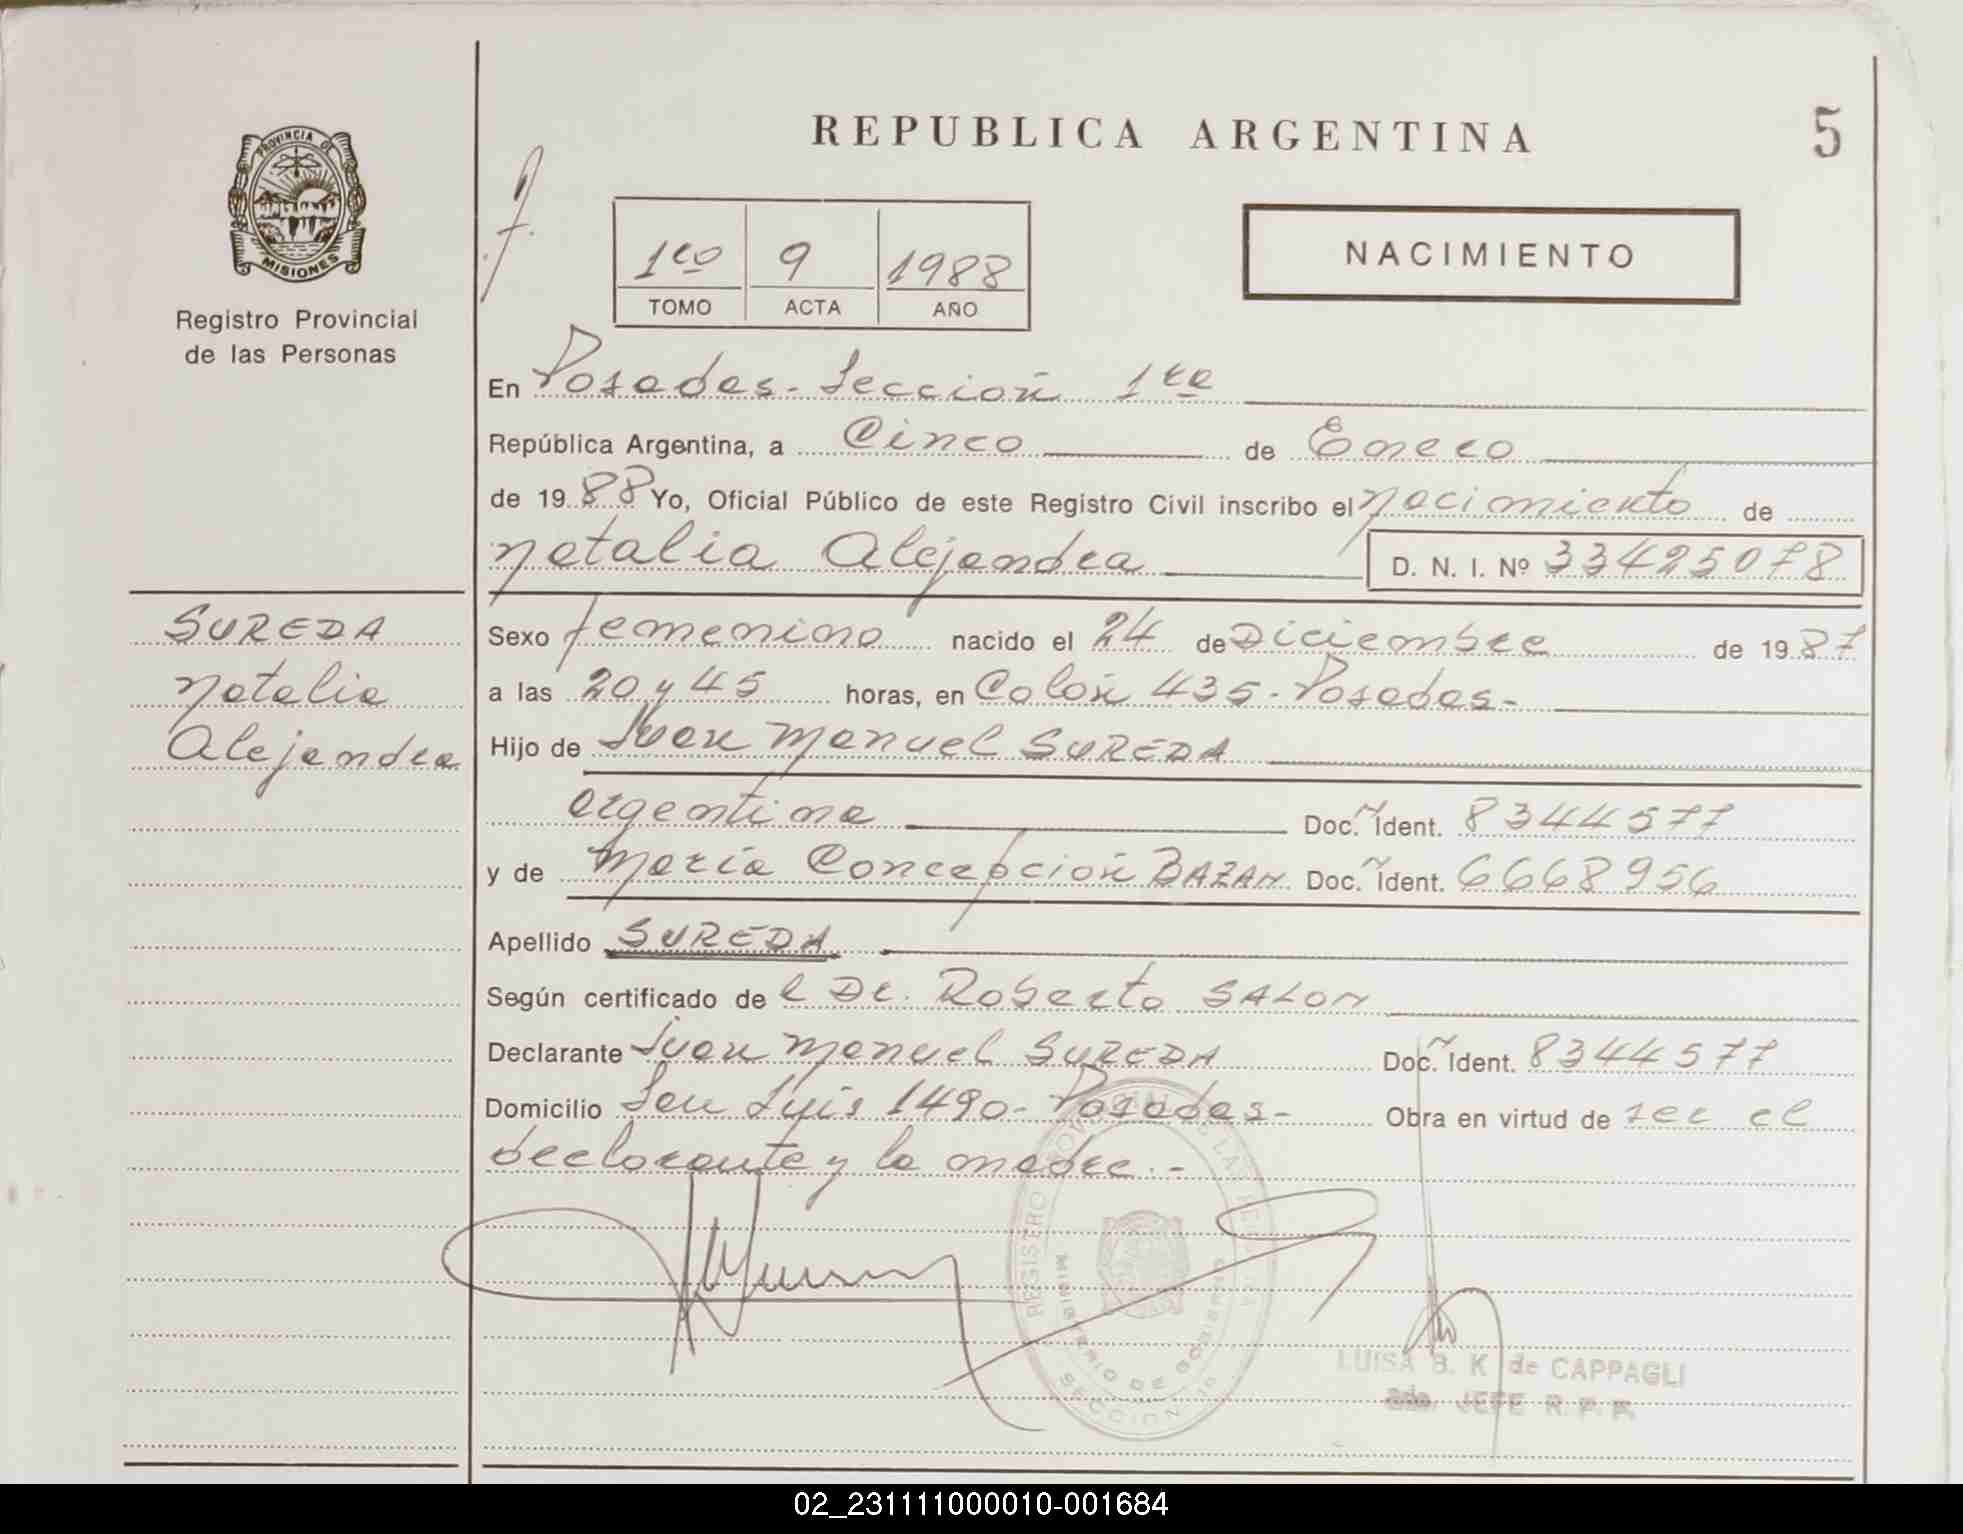 REPUBLICA ARGENTINA
5
PROVINCIA DE
MISIONES
Registro Provincial
de las Personas
1ro 9 1988
TOMO ACTA AÑO
NACIMIENTO
En Posadas - Sección 1ra
República Argentina, a Cinco de Enero
de 1988 Yo, Oficial Público de este Registro Civil inscribo el nacimiento de
Natalia Alejandra D. N. I. Nº 33425078
SUREDA
Natalia
Alejandra
Sexo femenino nacido el 24 de Diciembre de 1987
a las 20 y 45 horas, en Colón 435 - Posadas -
Hijo de Juan Manuel SUREDA
argentina Doc. Ident. 8344577
y de María Concepción BAZAN Doc. Ident. 6668956
Apellido SUREDA
Según certificado de l Dr. Roberto SALOM
Declarante Juan Manuel SUREDA Doc. Ident. 8344577
Domicilio San Luis 1490 - Posadas - Obra en virtud de ser el
declarante y la madre. -
REGISTRO PROVINCIAL DE LAS
MINISTERIO DE GOBIERNO
SECCION 1a
LUISA B. K. de CAPPAGLI
JEFE R. P. P.
02_231111000010-001684